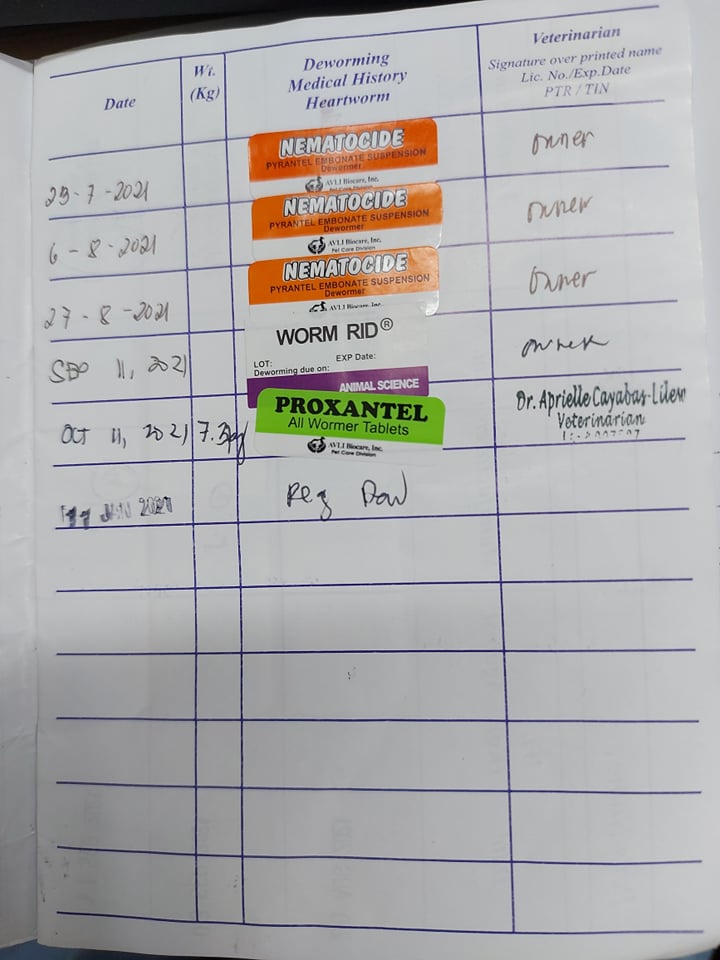 Date
Wt.
(Kg)
Deworming
Medical History
Heartworm
Veterinarian
Signature over printed name
Lic. No./Exp.Date
PTR / TIN
29-7-2021
NEMATOCIDE
PYRANTEL EMBONATE SUSPENSION
Dewormer
AVLI Biocare, Inc.
owner
6-8-2021
NEMATOCIDE
PYRANTEL EMBONATE SUSPENSION
Dewormer
AVLI Biocare, Inc.
Pet Care Division
owner
27-8-2021
NEMATOCIDE
PYRANTEL EMBONATE SUSPENSION
Dewormer
AVLI Biocare, Inc.
owner
SEP 11, 2021
WORM RID®
LOT: EXP Date:
Deworming due on:
ANIMAL SCIENCE
owner
OCT 11, 2021
PROXANTEL
All Wormer Tablets
AVLI Biocare, Inc.
Pet Care Division
Dr. Aprielle Cayabas-Lilew
Veterinarian
JAN 2021